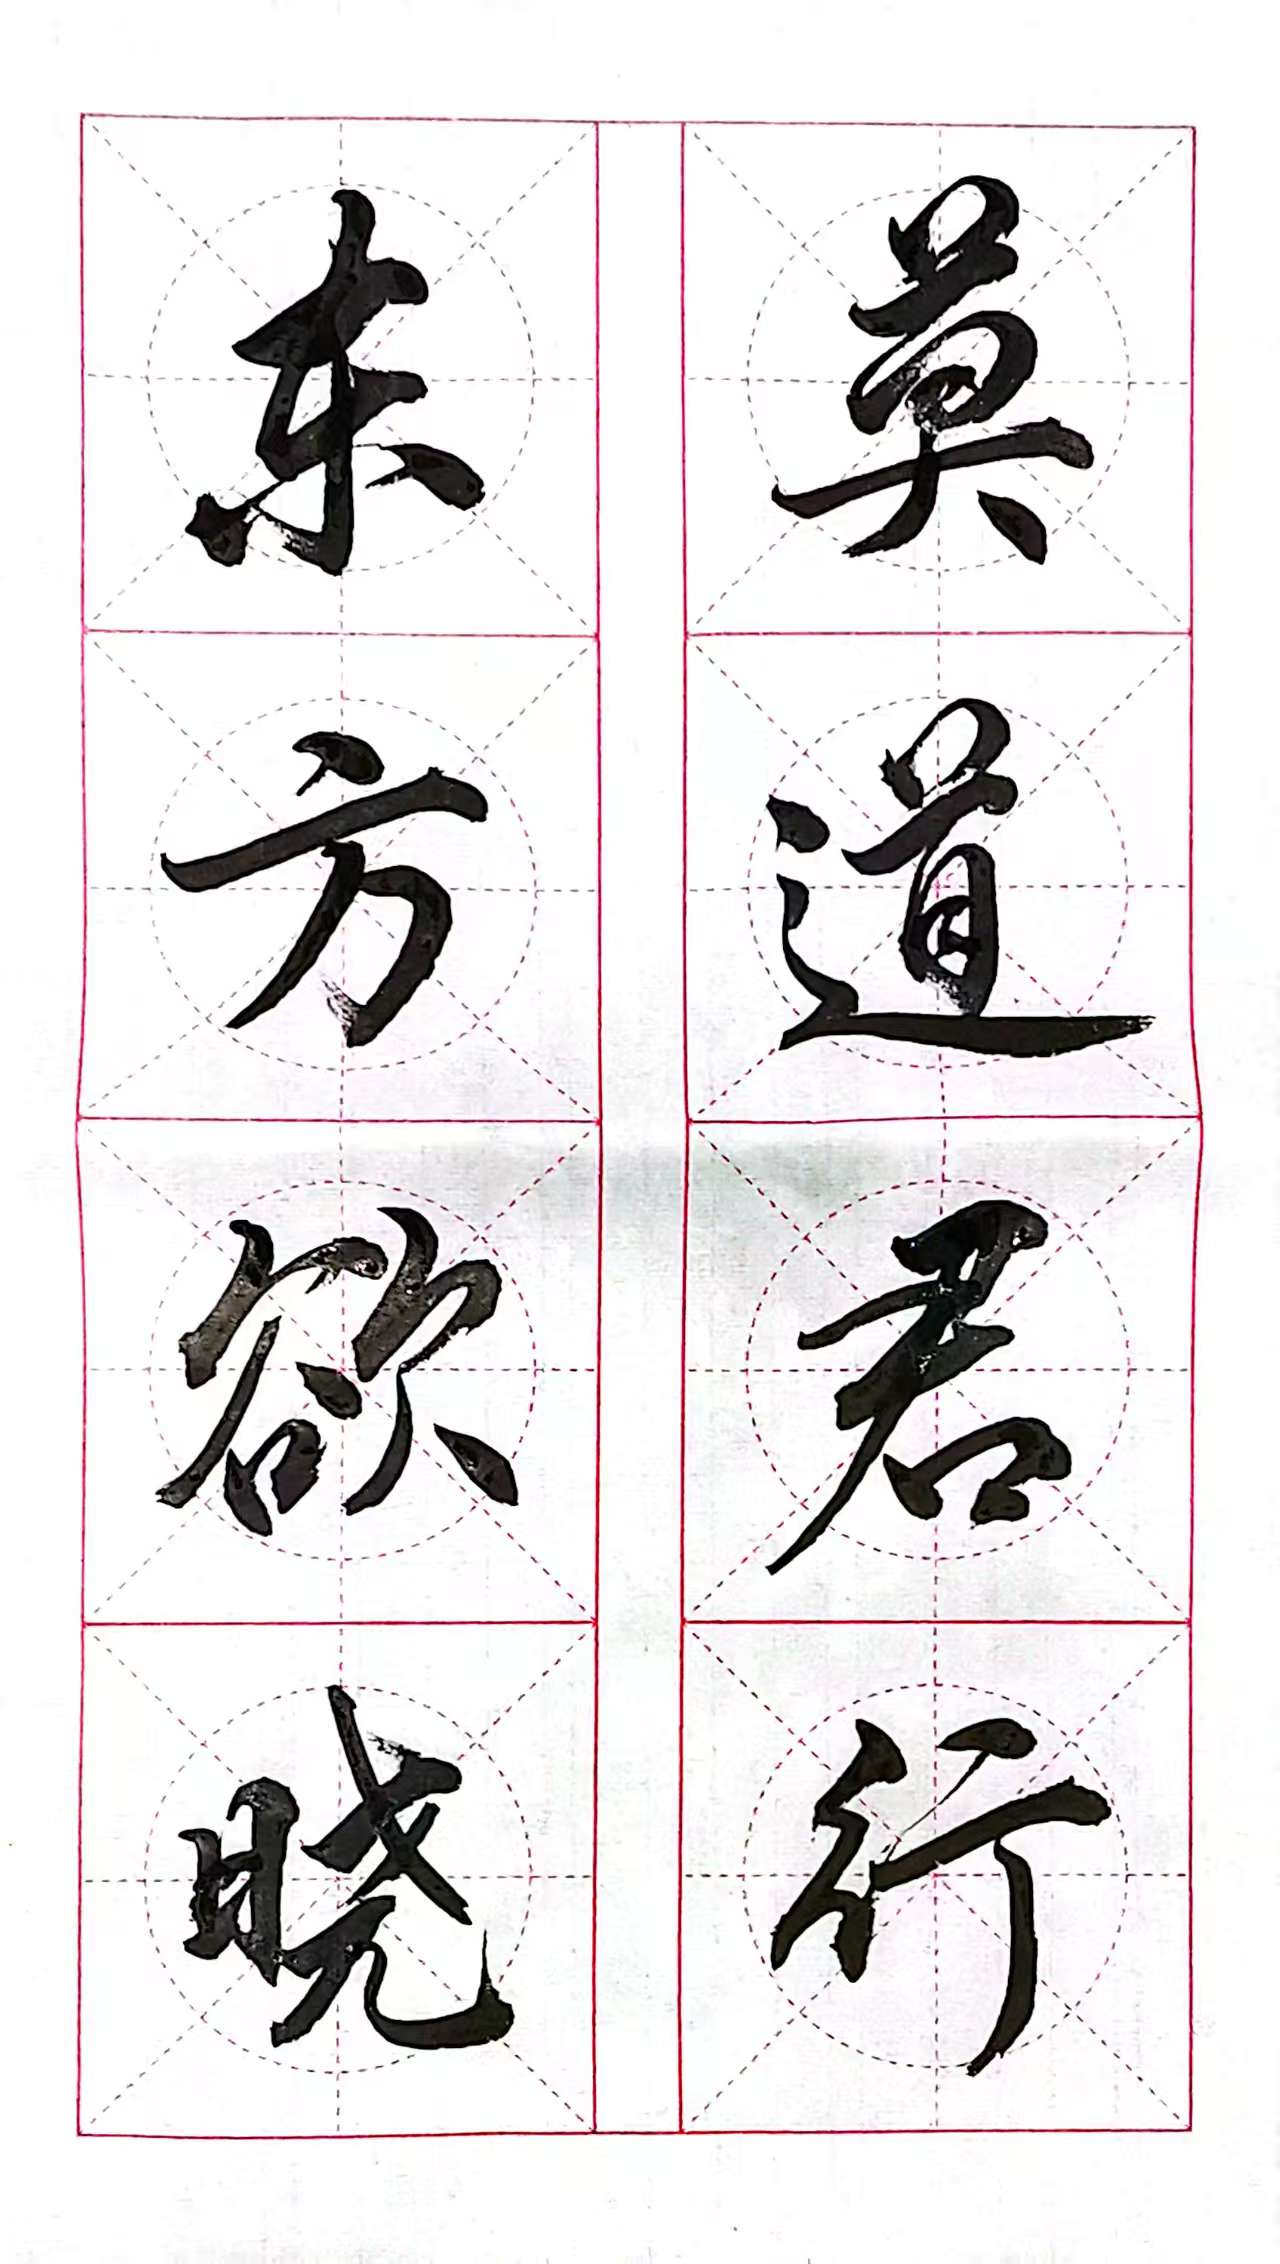 莫道君行
东方欲晓